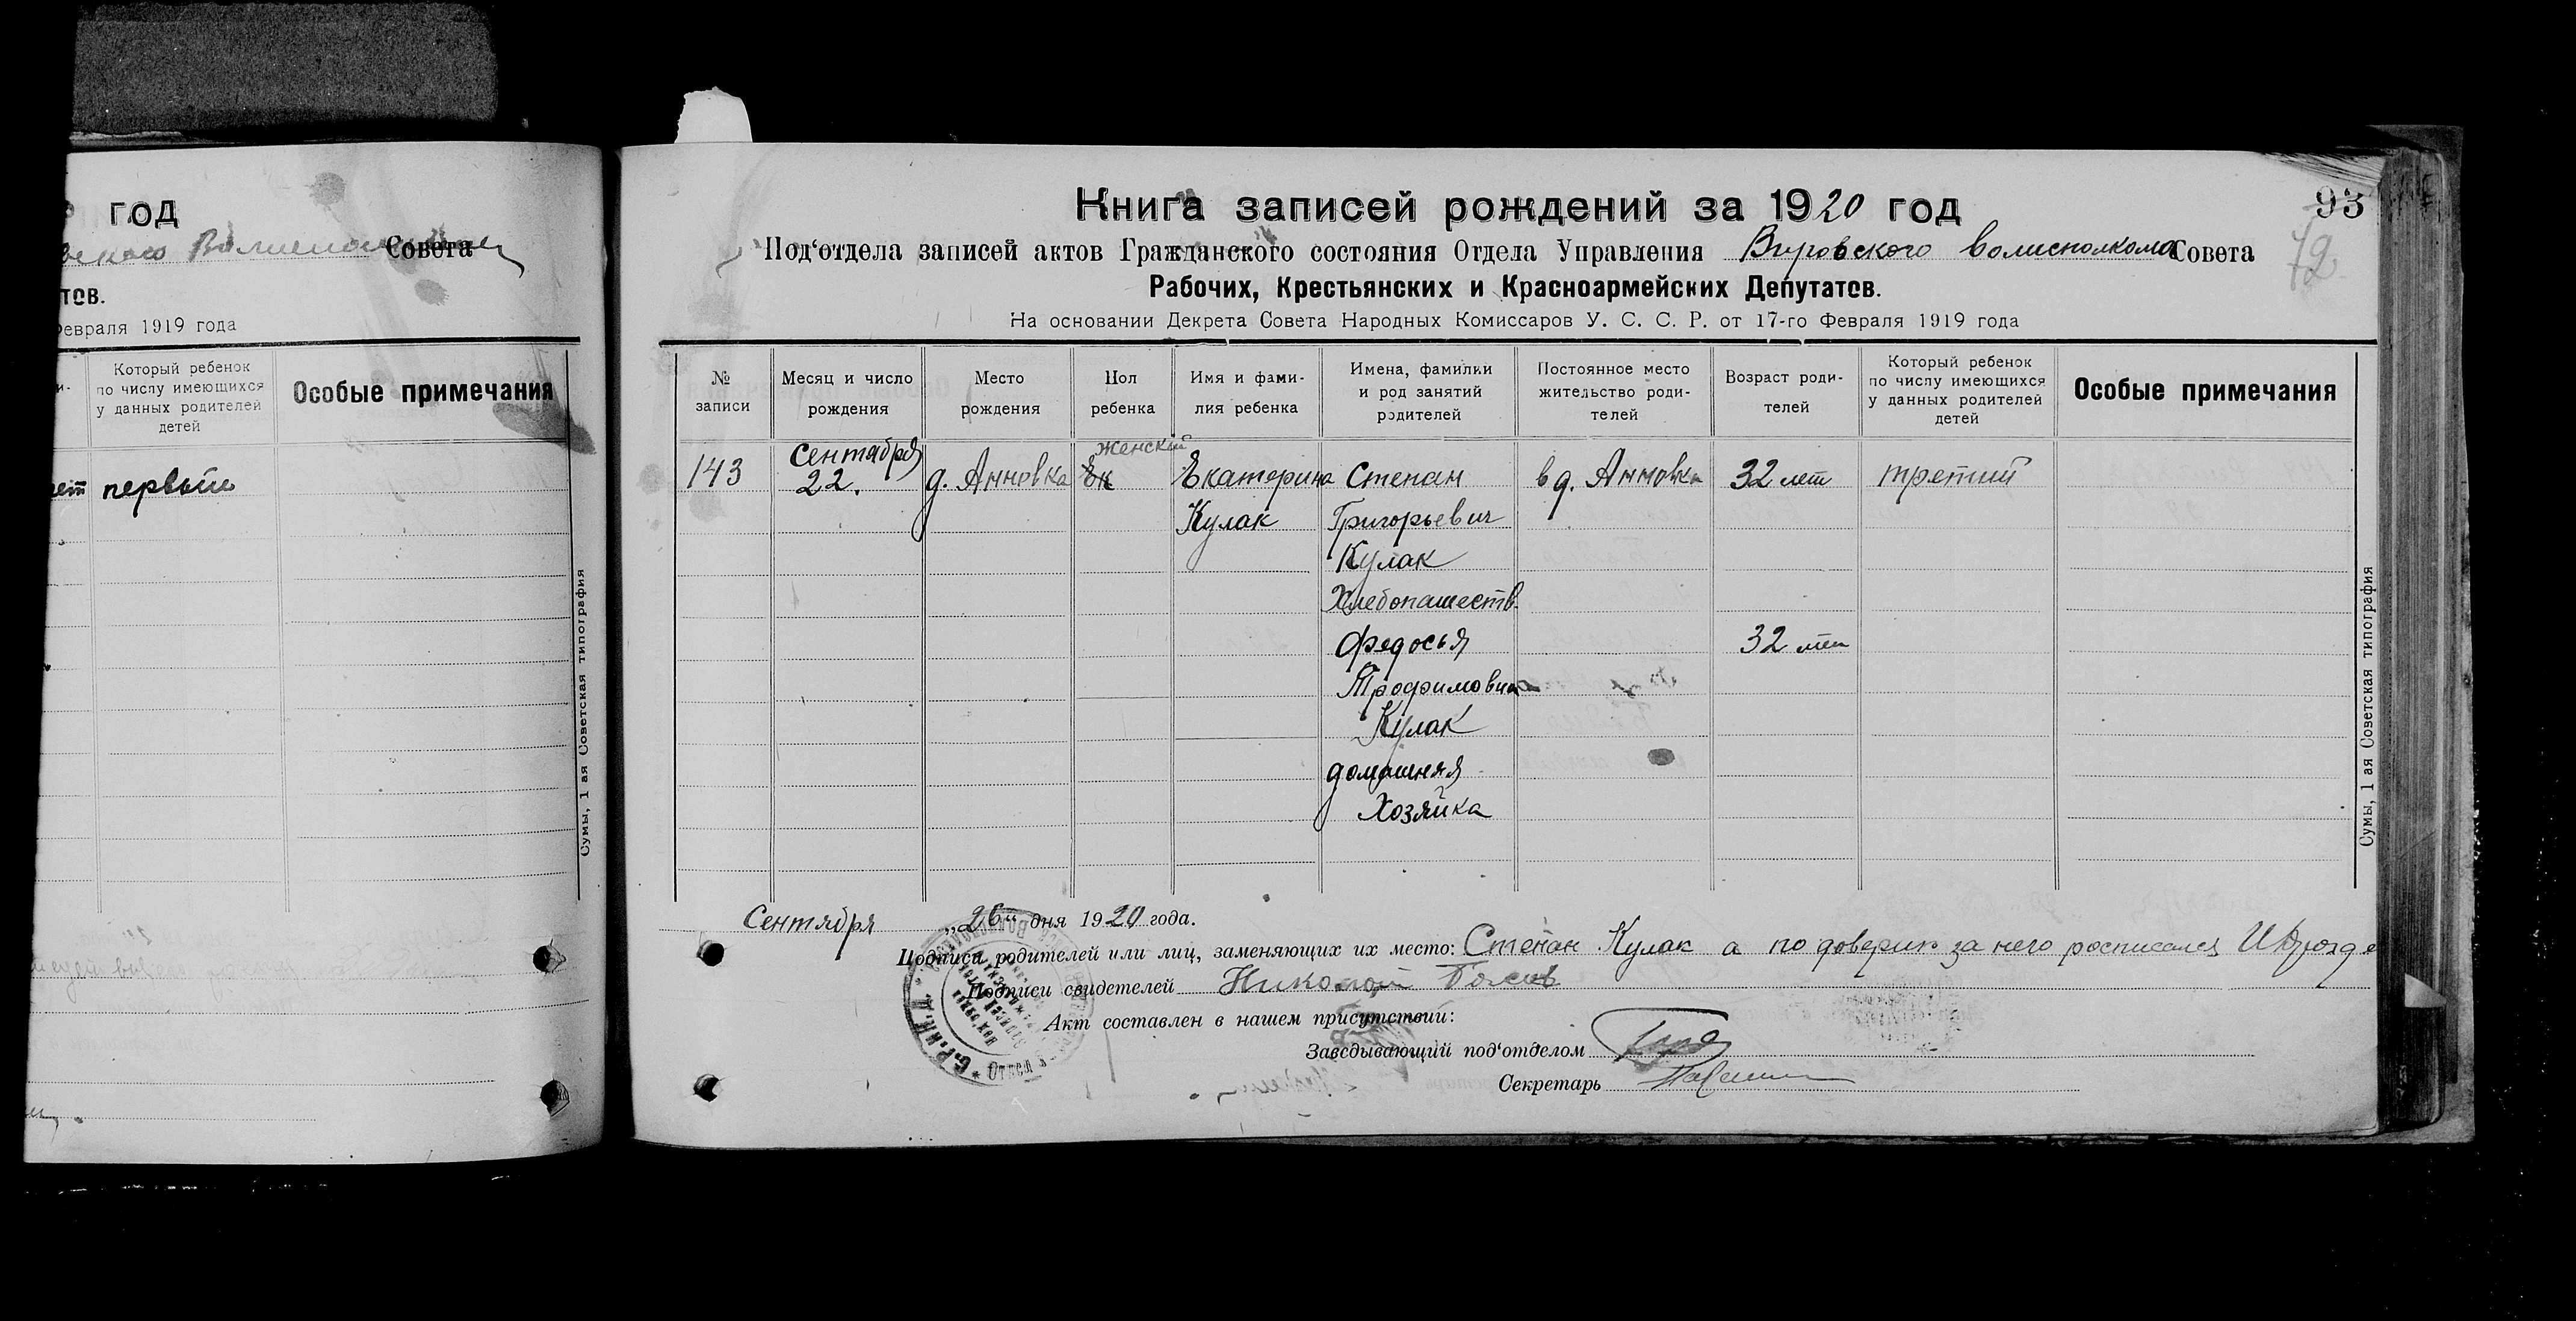 год
Совета
тов.
февраля 1919 года
Который ребенок
по числу имеющихся
у данных родителей
детей
Особые примечания
первый
Сумы, 1 ая Советская типография
93
72
Книга записей рождений за 1920 год
Под'отдела записей актов Гражданского состояния Отдела Управления Вировского волисполкома Совета
Рабочих, Крестьянских и Красноармейских Депутатов.
На основании Декрета Совета Народных Комиссаров У. С. С. Р. от 17-го Февраля 1919 года
№ записи
Месяц и число рождения
Место рождения
Пол ребенка
Имя и фами- лия ребенка
Имена, фамилии и род занятий родителей
Постоянное место жительство роди- телей
Возраст роди- телей
Который ребенок по числу имеющихся у данных родителей детей
Особые примечания
женский
143 Сентября 22. д. Анновка Ек Екатерина Степан в д. Анновка 32 лет третий
Кулак Григорьевич
Кулак
Хлебопашеств.
Федосья 32 лет
Трофимовна
Кулак
домашняя
Хозяйка
Сумы, 1 ая Советская типография
Сентября „26“ дня 1920 года.
Подписи родителей или лиц, заменяющих их место: Степан Кулак а по доверию за него росписался
Подписи свидетелей Николай
Акт составлен в нашем присутствии:
Заведывающий под'отделом
Секретарь